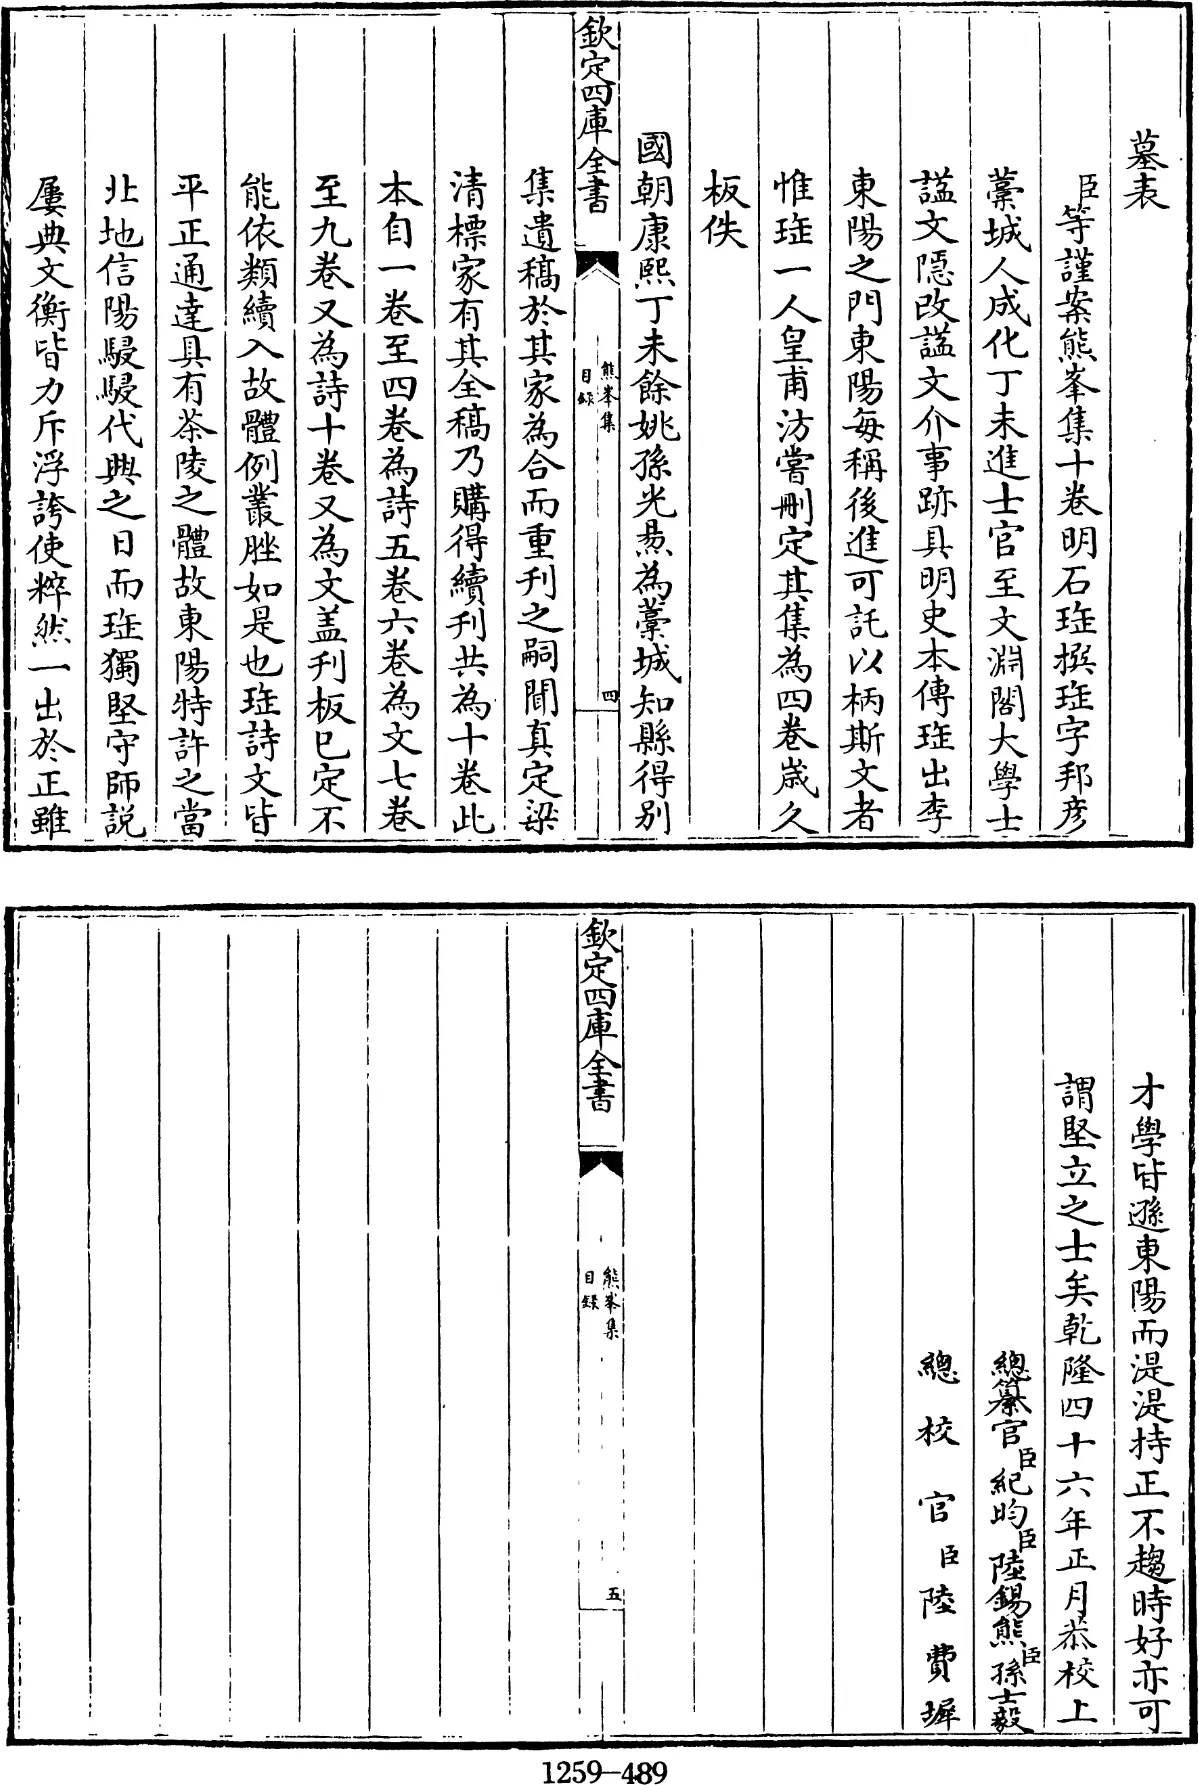 墓表
臣等謹案熊峯集十卷明石珤撰珤字邦彦
藁城人成化丁未進士官至文淵閣大學士
諡文隠改諡文介事跡具明史本傳珤出李
東陽之門東陽每稱後進可託以柄斯文者
惟珤一人皇甫汸嘗刪定其集為四卷嵗久
板佚
國朝康熙丁未餘姚孫光㬎為藁城知縣得别
欽定四庫全書
熊峯集
目録
四
集遺稿於其家為合而重刋之嗣聞真定梁
清標家有其全稿乃購得續刋共為十卷此
本自一卷至四卷為詩五卷六卷為文七卷
至九卷又為詩十卷又為文盖刋板已定不
能依類續入故體例叢脞如是也珤詩文皆
平正通達具有茶陵之體故東陽特許之當
北地信陽駸駸代興之日而珤獨堅守師説
屢典文衡皆力斥浮誇使粹然一出於正雖
才學皆遜東陽而湜湜持正不趨時好亦可
謂堅立之士矣乾隆四十六年正月恭校上
總纂官臣紀昀臣陸錫熊臣孫士毅
總校官臣陸費墀
欽定四庫全書
熊峯集
目録
五
1259-489